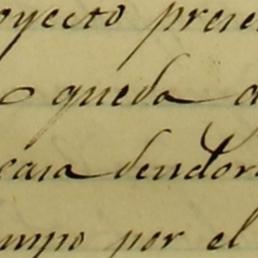 oyecto prese
o queda a
casa dendor
mpo por el